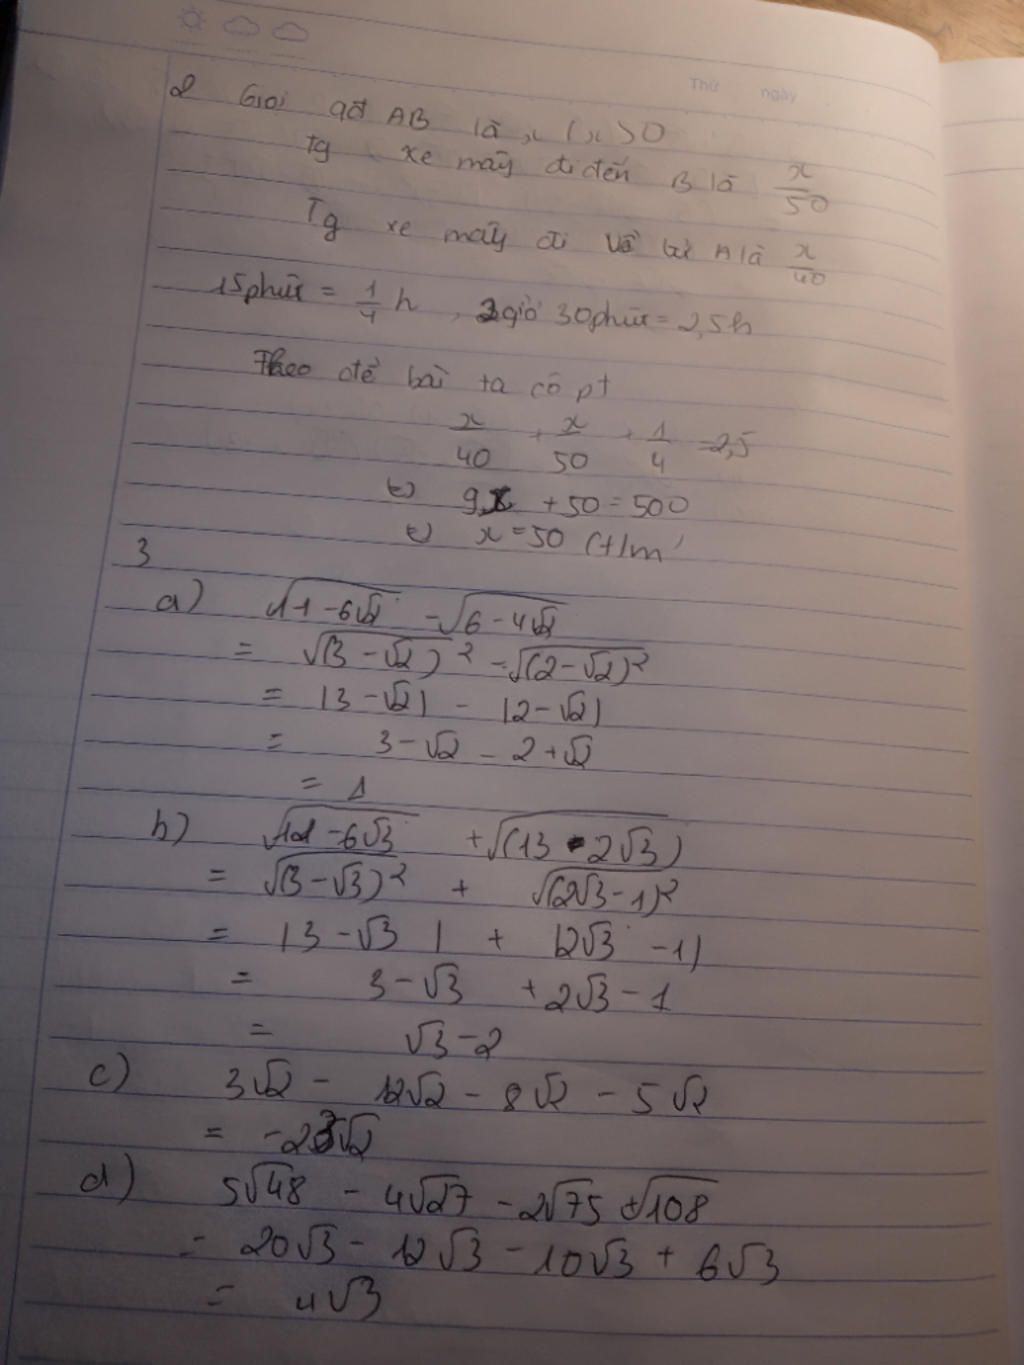 Thứ ngày
2 Gọi qđ AB là x (x > 0
Tg xe máy đi đến B là x/50
Tg xe máy đi về từ A là x/40
15 phút = 1/4 h, 2 giờ 30 phút = 2,5h
Theo đề bài ta có pt
x/40 + x/50 + 1/4 = 2,5
9x + 50 = 500
x = 50
3
a) √11 - 6√2 - √6 - 4√2
= √(3 - √2)² - √(2 - √2)²
= |3 - √2| - |2 - √2|
= 3 - √2 - 2 + √2
= 1
b) √12 - 6√3 + √(13 - 2√3)
= √(3 - √3)² + √(2√3 - 1)²
= |3 - √3| + |2√3 - 1|
= 3 - √3 + 2√3 - 1
= √3 - 2
c) 3√2 - 12√2 - 8√2 - 5√2
= -23√2
d) 5√48 - 4√27 - 2√75 + √108
= 20√3 - 12√3 - 10√3 + 6√3
= 4√3